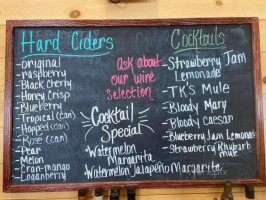 Hard Ciders
- original
- raspberry
- Black Cherry
- Honey Crisp
- Blueberry
- Tropical (can)
- Hopped (can)
- Rose (can)
- Pear
- Melon
- Cran-mango
- Loganberry
ask about
our wine
selection
Cocktail
Special
- Watermelon
Margarita
- Watermelon Jalapeño Margarita
Cocktails
- Strawberry Jam
Lemonade
- TK's Mule
- Bloody Mary
- Bloody Caesar
- Blueberry Jam Lemonade
- Strawberry Rhubarb
mule